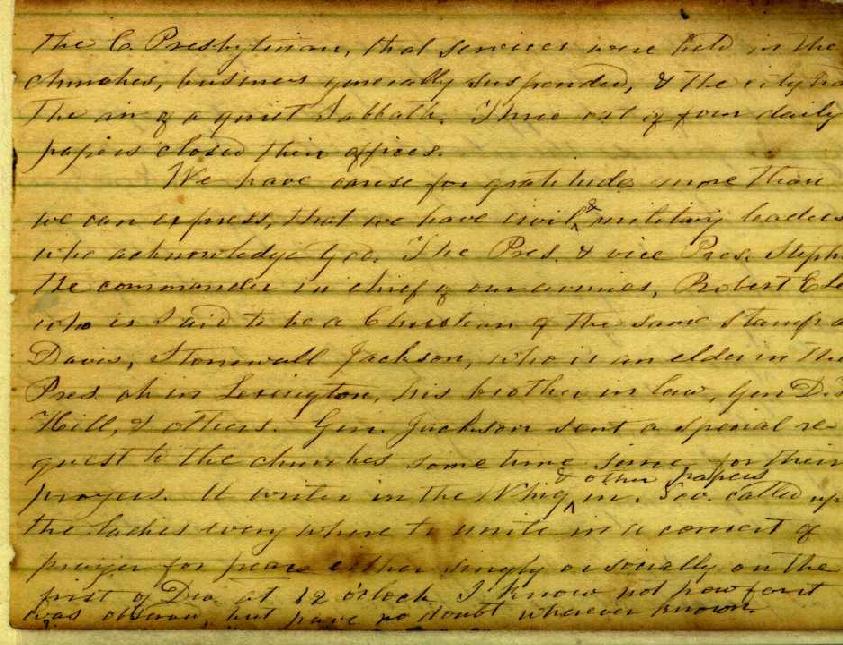 the C. Presbyterian, that services were held in the
churches, business generally suspended, & the city had
the air of a quiet Sabbath. Three out of four daily
papers closed their offices.
We have cause for gratitude more than
we can express, that we have civil & military leaders
who acknowledge God. The Pres. & vice Pres. Steph
the commander in chief of our armies, Robert E Le
who is said to be a Christian of the same stamp a
Davis, Stonewall Jackson, who is an elder in the
Pres. ch in Lexington, his brother in law, Gen D.
Hill, & others. Gen. Jackson sent a special re-
quest to the churches some time since for their
prayers. A writer in the Whig & other papers in. Nov. called up
the ladies every where to unite in a concert of
prayer for peace either singly or socially on the
first of Dec. at 12 o'clock I know not how far it
was observed, but have no doubt wherever known.